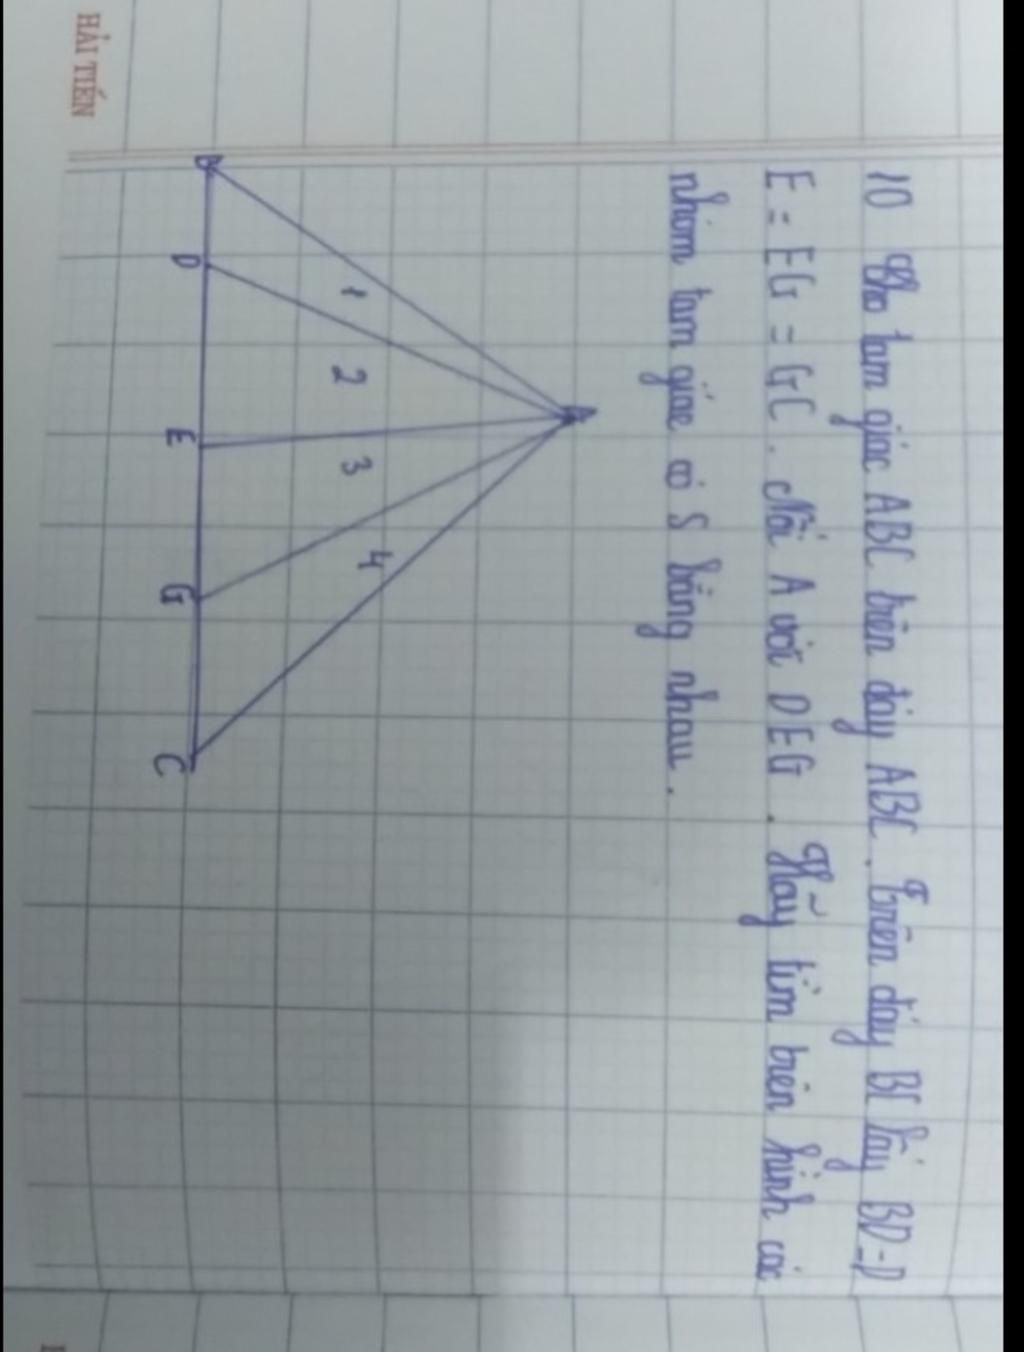 10 Cho tam giác ABC trên đáy ABC. Trên đáy BC lấy BD = D
E = EG = GC. Nối A với DEG. Hãy tìm trên hình các
nhóm tam giác có S bằng nhau.
A
1 2 3 4
B D E G C
HẢI TIẾN